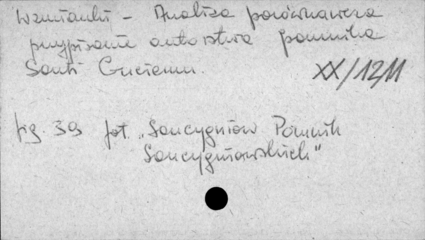 Wzmianki - Analiza porównawcza
przypisanie autorstwa pomnika
Santi Gucciemu.
XX/12/11
fig. 39 fot. „Soucygniów Pomnik
Soucygniowskich"